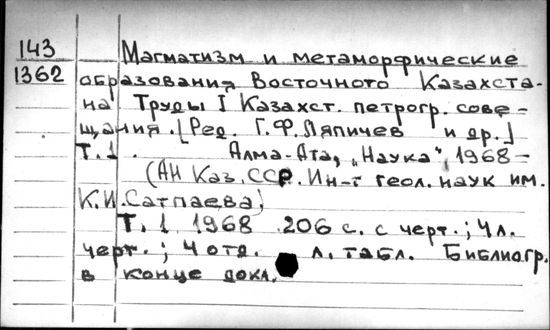 143 Магматизм и метаморфические
1362 образования Восточного Казахста-
на Труды I Казахст. петрогр. сове-
щания. [Ред. Г.Ф. Ляпичев и др.]
Т.1. Алма-Ата, „Наука", 1968-
(АН Каз.ССР. Ин-т геол. наук им.
К.И. Сатпаева)
Т.1 1968 206 с. с черт.; 4 л.
черт.; 4 отд. л. табл. Библиогр.
в конце докл.